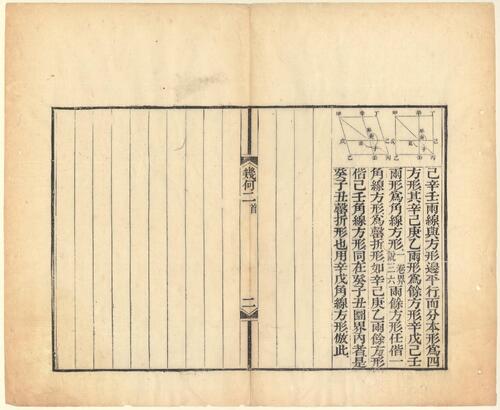 己辛壬兩線與方形邊平行而分本形爲四
方形其辛己庚乙兩形爲餘方形辛戊己壬
兩形爲角線方形一卷界說三六兩餘方形任偕一
角線方形爲罄折形如辛己庚乙兩餘方形
偕己壬角線方形同在癸子丑圜界內者是
癸子丑罄折形也用辛戊角線方形倣此
幾何二首
二